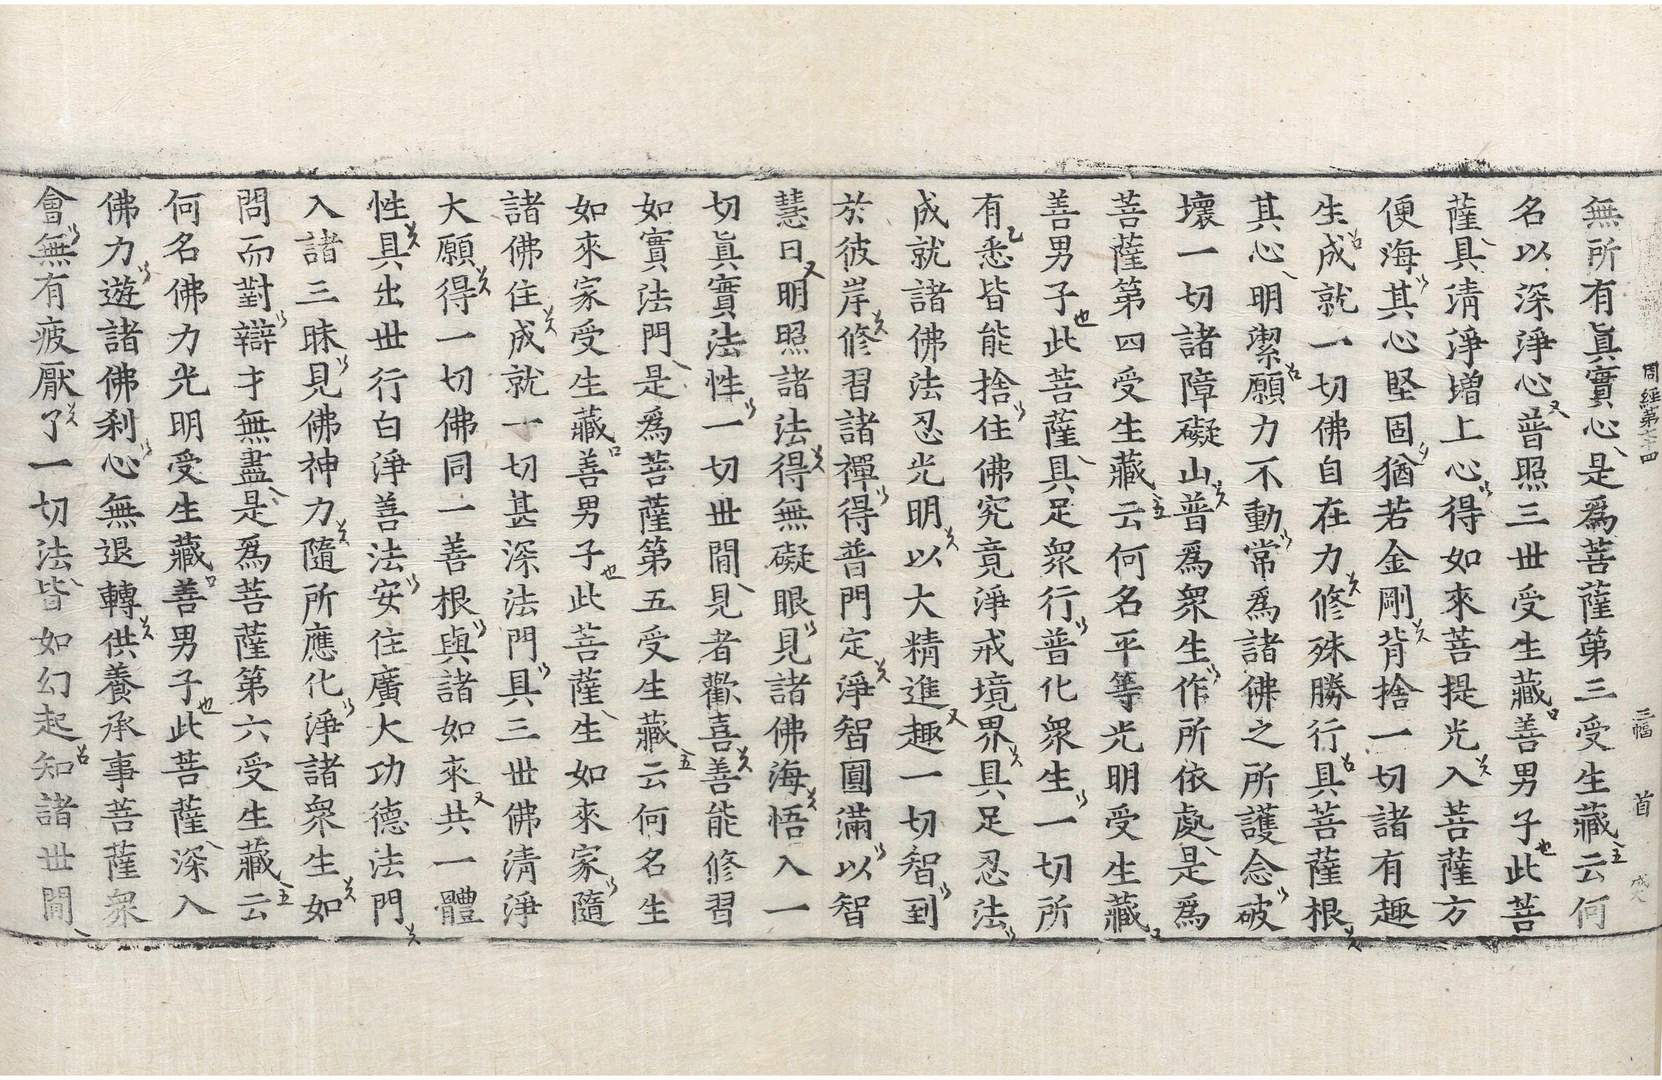 周經第七十四 三幅 首
無所有眞實心是爲菩薩第三受生藏云何
名以深淨心普照三世受生藏善男子此菩
薩具淸淨增上心得如來菩提光入菩薩方
便海其心堅固猶若金剛背捨一切諸有趣
生成就一切佛自在力修殊勝行具菩薩根
其心明潔願力不動常爲諸佛之所護念破
壞一切諸障礙山普爲衆生作所依處是爲
菩薩第四受生藏云何名平等光明受生藏
善男子此菩薩具足衆行普化衆生一切所
有悉皆能捨住佛究竟淨戒境界具足忍法
成就諸佛法忍光明以大精進趣一切智到
於彼岸修習諸禪得普門定淨智圓滿以智
慧日明照諸法得無礙眼見諸佛海悟入一
切眞實法性一切世間見者歡喜善能修習
如實法門是爲菩薩第五受生藏云何名生
如來家受生藏善男子此菩薩生如來家隨
諸佛住成就一切甚深法門具三世佛淸淨
大願得一切佛同一善根與諸如來共一體
性具出世行白淨善法安住廣大功德法門
入諸三昧見佛神力隨所應化淨諸衆生如
問而對辯才無盡是爲菩薩第六受生藏云
何名佛力光明受生藏善男子此菩薩深入
佛力遊諸佛刹心無退轉供養承事菩薩衆
會無有疲厭了一切法皆如幻起知諸世間